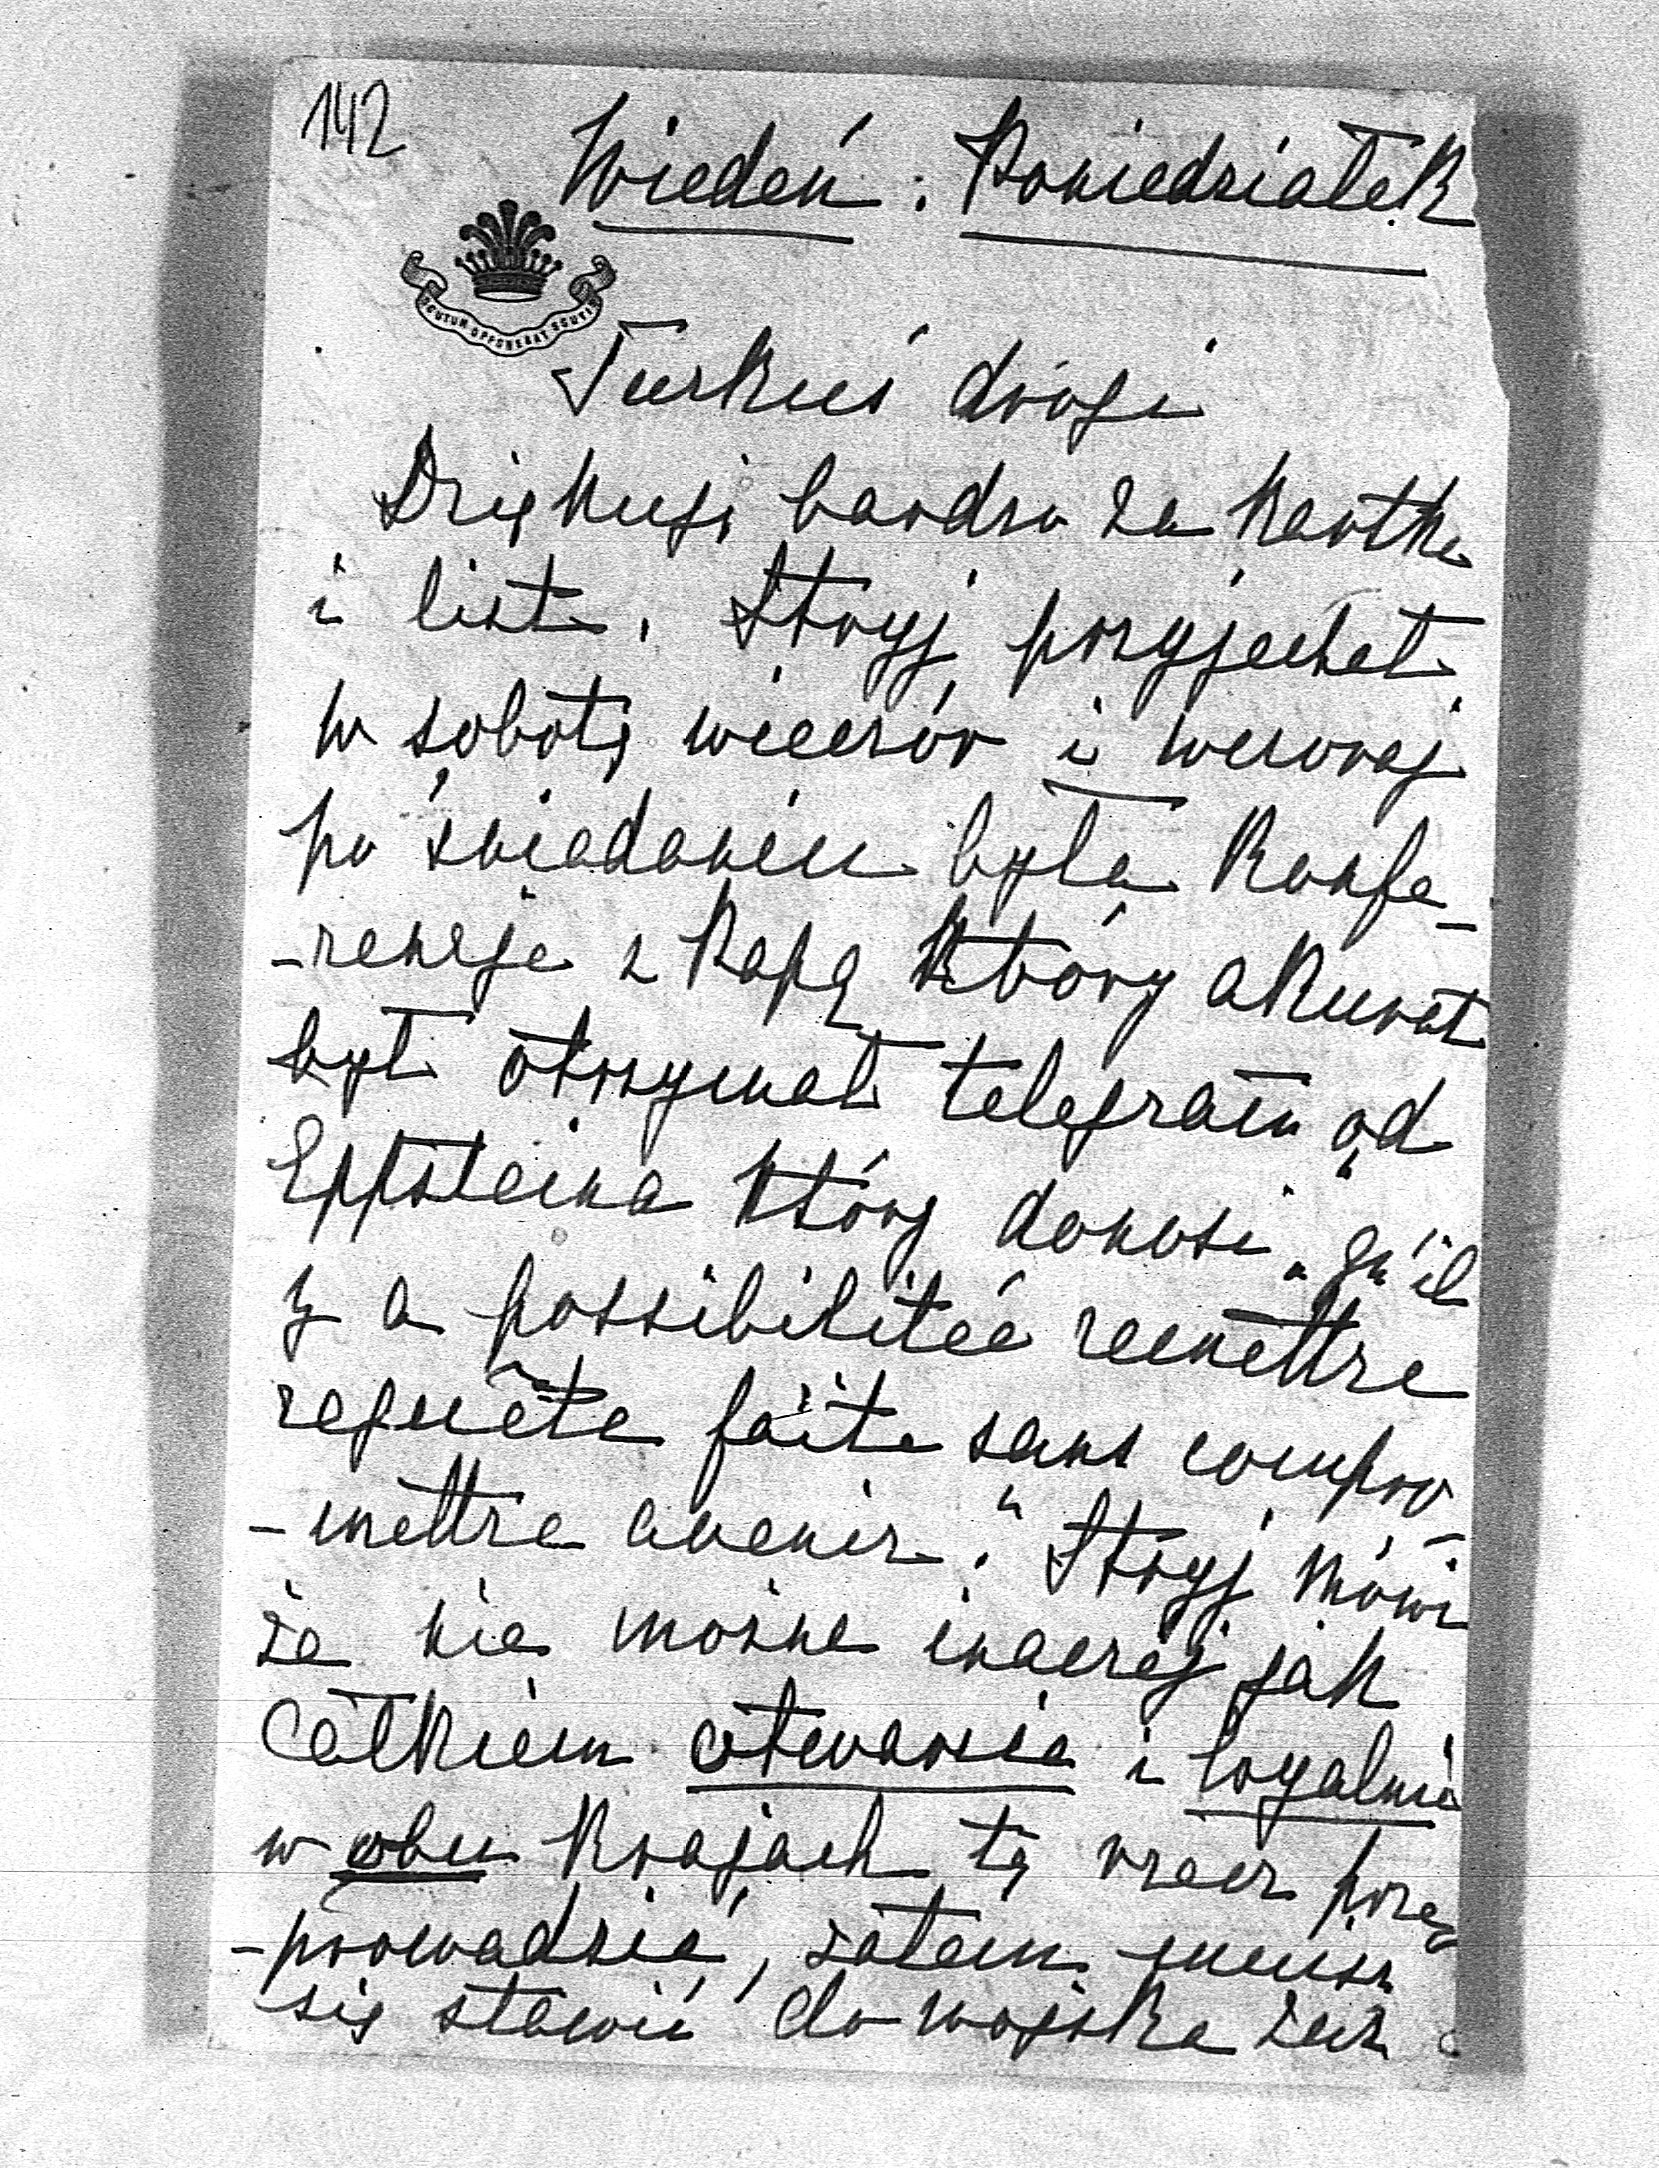 142
Wiedeń. Poniedziałek
SCUTUM OPPONEBAT SCUTIS
Turkuś drogi
Dziękuję bardzo za kartkę
i list. Stryj przyjechał
w sobotę wieczór i wczoraj
po śniadaniu była Konfe-
-rencja z Papą który akurat
był otrzymał telegram od
Eppsteina który donosi „qu'il
y a possibilitée remettre
requête faite sans compro-
-mettre avenir." Stryj mówi
że nie można inaczej jak
całkiem otwarcie i loyalnie
w obu krajach tę rzecz prze-
-prowadzić, zatem musisz
się stawić do wojska